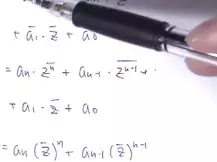 + a̅₁ · z̅ + a₀
= aₙ · z̅ⁿ + aₙ₋₁ · z̅ⁿ⁻¹ + ·
+ a₁ · z̅ + a₀
= aₙ (z̅)ⁿ + aₙ₋₁ (z̅)ⁿ⁻¹